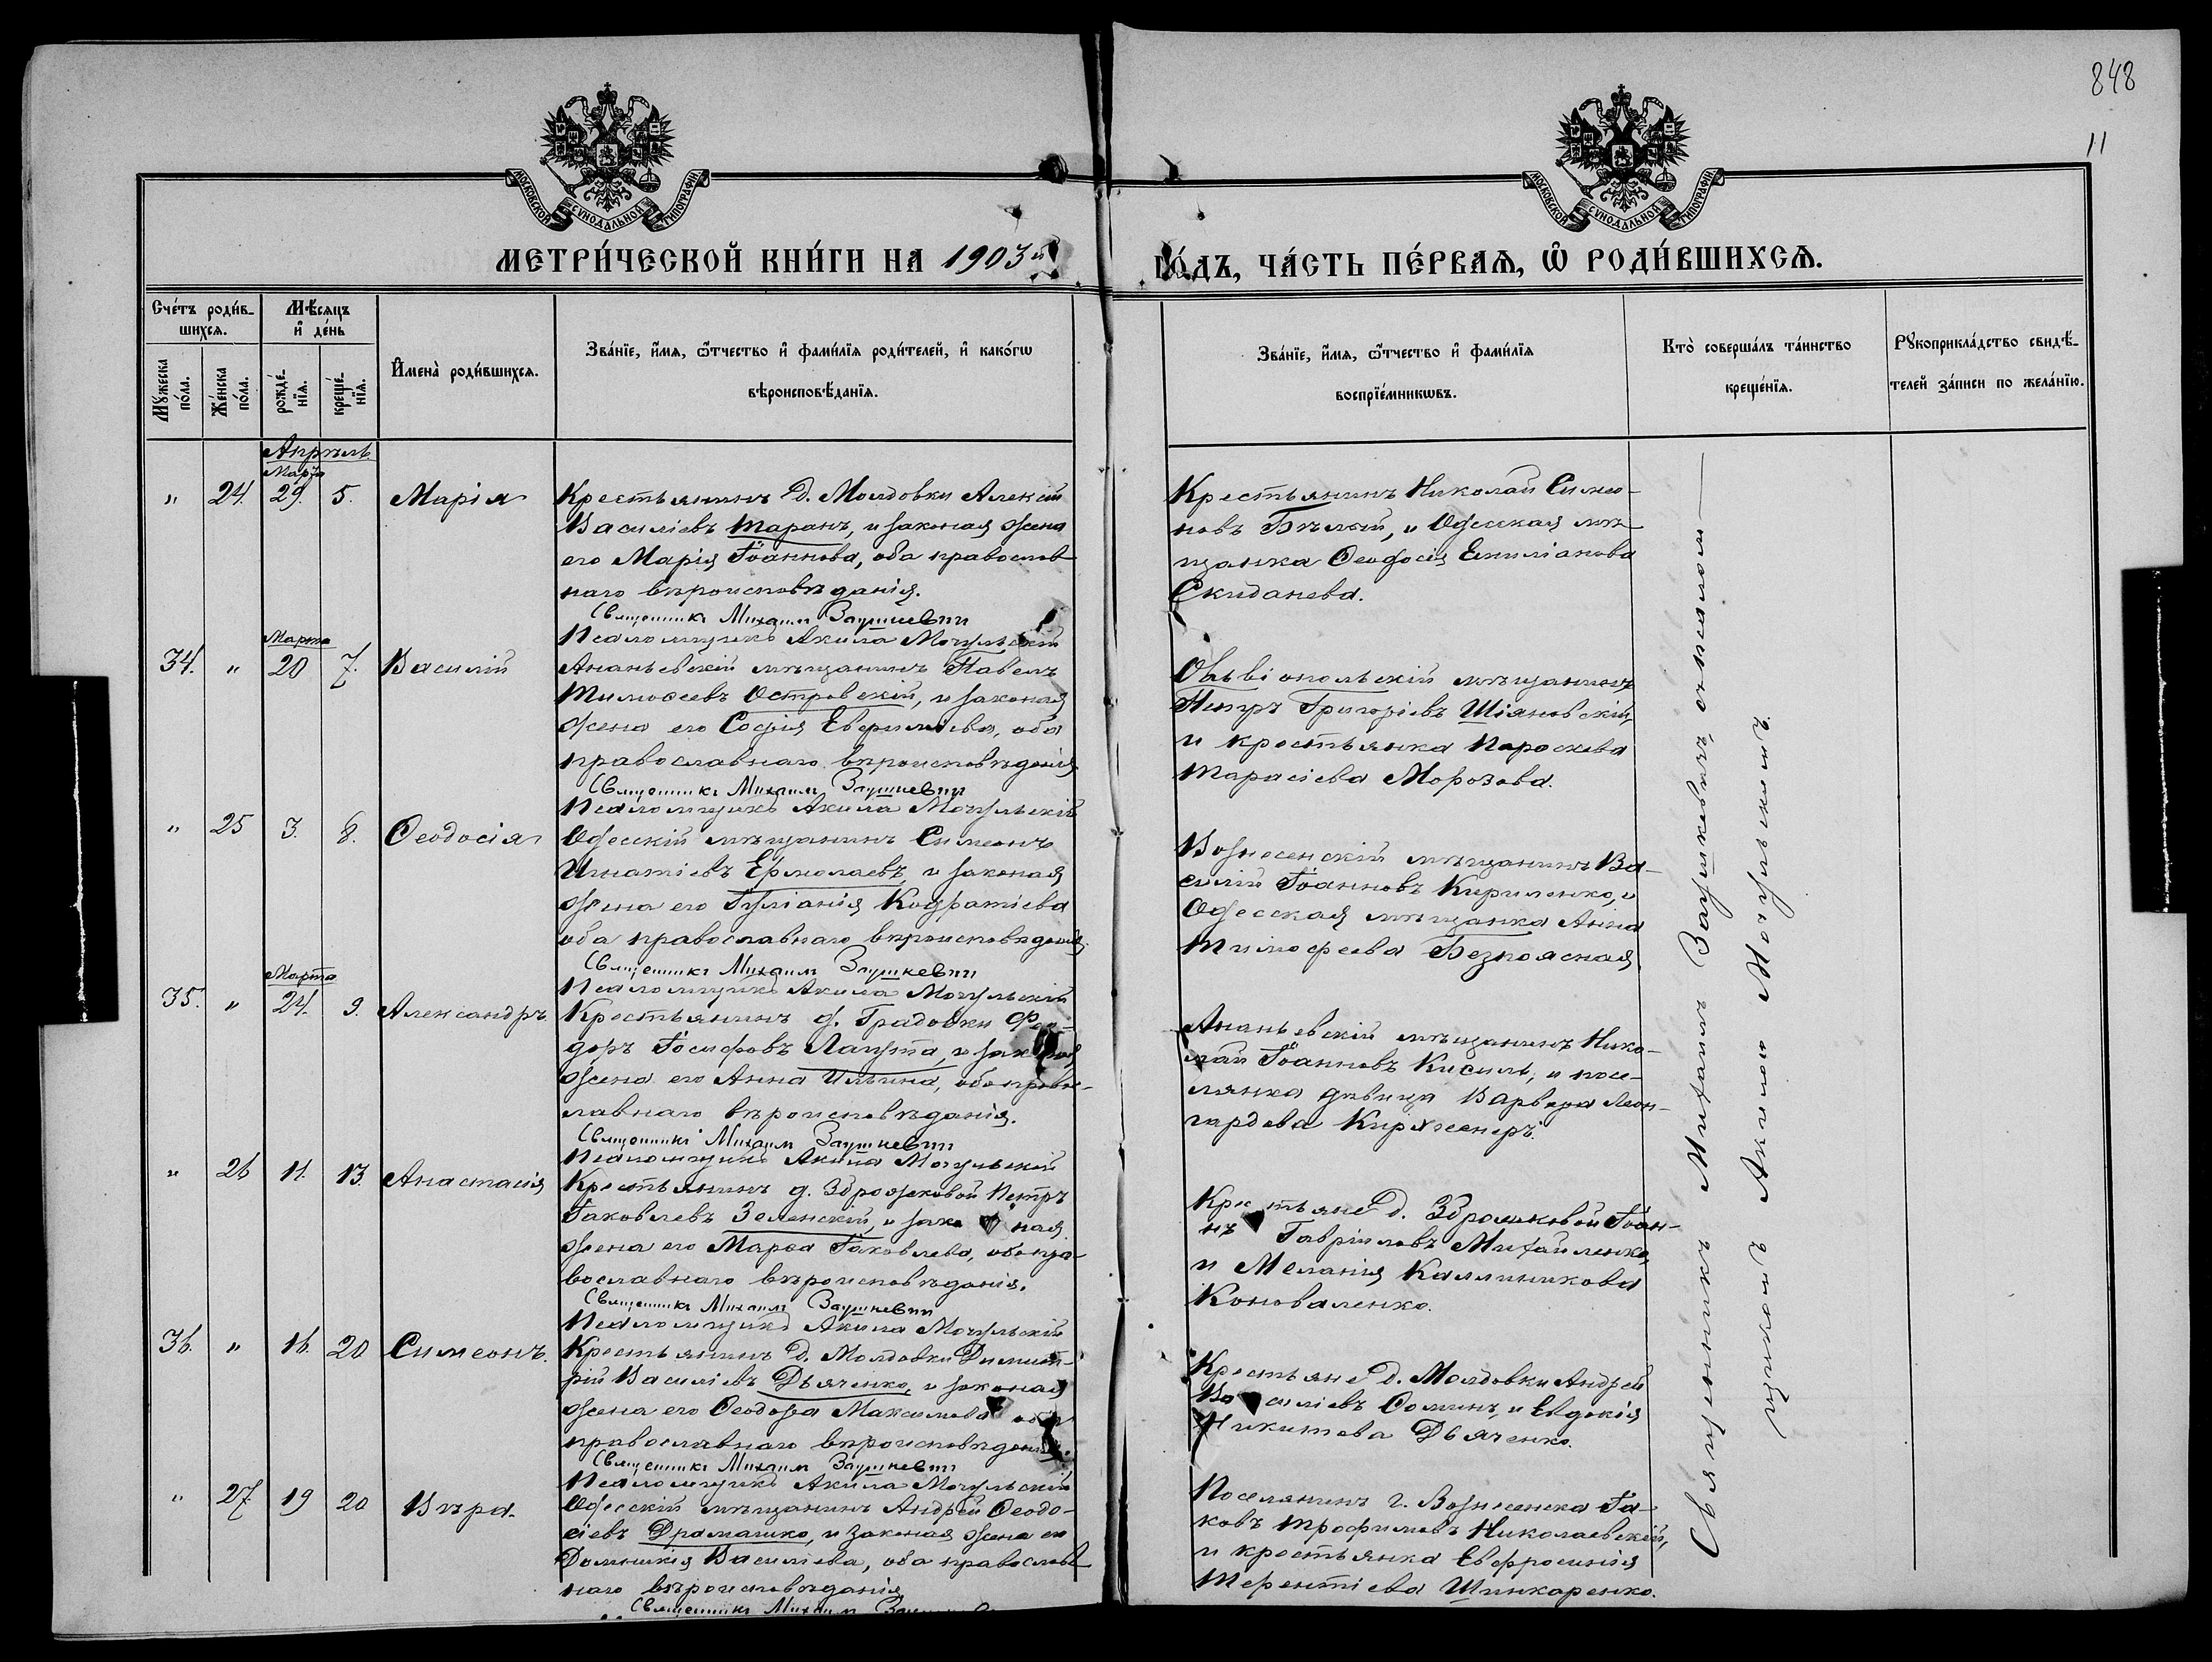 848
11
МОСКОВСКОЙ СѴНОДАЛЬНОЙ ТИПОГРАФІИ
МОСКОВСКОЙ СѴНОДАЛЬНОЙ ТИПОГРАФІИ
МЕТРИ́ЧЕСКОЙ КНИ́ГИ НА 1903й
ГО́ДЪ, ЧА́СТЬ ПЕ́РВАѦ, Ѽ РОДИ́ВШИХСѦ.
Сче́тъ роди́в-
шихсѧ.
Мѣ́сѧцъ
и҆ де́нь
Мꙋ́жеска по́ла.
Же́нска по́ла.
рожде́-нїѧ.
креще́-нїѧ.
И҆мена̀ роди́вшихсѧ.
Зва́нїе, и҆́мѧ, ѻ҆́тчество и҆ фами́лїѧ роди́телей, и҆ како́гѡ
вѣроисповѣ́данїѧ.
Зва́нїе, и҆́мѧ, ѻ҆́тчество и҆ фами́лїѧ
воспрїе́мникѡвъ.
Кто̀ соверша́лъ та́инство
креще́нїѧ.
Рꙋкоприкла́дство свидѣ́-
телей за́писи по жела́нїю.
Апрѣль.
Марта
" 24. 29. 5. Марія
Крестьянинъ д. Молдовки Алексій
Василіевъ Таранъ, и законая жена
его Марія Іоаннова, оба православ-
наго вѣроисповѣданія.
Священникъ Михаилъ Заушкевичъ
Псаломщикъ Акила Могульскій
Крестьянинъ Николай Симео-
новъ Бѣлый, и Одесская мѣ-
щанка Ѳеодосія Емиліанова
Скиданева.
Марта
34. " 20 7. Василій
Ананьевскій мѣщанинъ Павелъ
Тимоѳеевъ Островскій, и законая
жена его Софія Евфиміева, оба
православнаго вѣроисповѣданія
Священникъ Михаилъ Заушкевичъ
Псаломщикъ Акила Могульскій
Ольвіопольскій мѣщанинъ
Петръ Григоріевъ Шіяновскій,
и крестьянка Параскева
Тарасіева Морозова.
" 25 3. 8. Ѳеодосія
Одесскій мѣщанинъ Симеонъ
Игнатіевъ Ермолаевъ, и законая
жена его Іуліанія Кодратіева
оба православнаго вѣроисповѣданія.
Священникъ Михаилъ Заушкевичъ
Псаломщикъ Акила Могульскій
Вознесенскій мѣщанинъ Ва-
силій Іоанновъ Кириленко, и
Одесская мѣщанка Анна
Тимофеева Безпоясная.
Марта
35. " 24. 9. Александръ.
Крестьянинъ д. Градовки Фео-
доръ Іосифовъ Лапута, и законая
жена его Анна Ильина, оба правос-
лавнаго вѣроисповѣданія.
Священникъ Михаилъ Заушкевичъ
Псаломщикъ Акила Могульскій
Ананьевскій мѣщанинъ Нико-
лай Іоанновъ Кисиль, и посе-
лянка дѣвица Варвара Леон-
гардова Киржнеръ.
" 26 11. 13. Анастасія
Крестьянинъ д. Зброжековой Петръ
Іаковлевъ Зеленскій, и законая
жена его Марѳа Іаковлева, оба пра-
вославнаго вѣроисповѣданія.
Священникъ Михаилъ Заушкевичъ
Псаломщикъ Акила Могульскій
Крестьяне д. Зброжековой Іоан-
нъ Гавріиловъ Михайленко,
и Меланія Каллиникова
Коноваленко.
36. " 16. 20 Симеонъ.
Крестьянинъ д. Молдовки Димит-
рій Василіевъ Дьяченко, и законая
жена его Ѳеодора Максимова оба
православнаго вѣроисповѣданія.
Священникъ Михаилъ Заушкевичъ
Псаломщикъ Акила Могульскій
Крестьяне д. Молдовки Андрей
Василіевъ Ѳоминъ, и Евдокія
Никитева Дьяченко.
" 27. 19 20 Вѣра.
Одесскій мѣщанинъ Андрей Ѳеодо-
сіевъ Драмашко, и законая жена его
Домникія Василіева, оба православ-
наго вѣроисповѣданія
Священникъ Михаилъ
Поселянинъ г. Вознесенска Іа-
ковъ Трофимовъ Николаевскій,
и крестьянка Евфросинія
Терентіева Шинкаренко.
Священникъ Михаилъ Заушкевичъ, съ псалом-
щикомъ Акилою Могульскимъ.